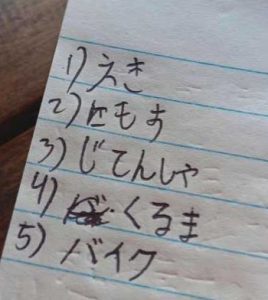 1) えき
2) にもす
3) じてんしゃ
4) くるま
5) バイク